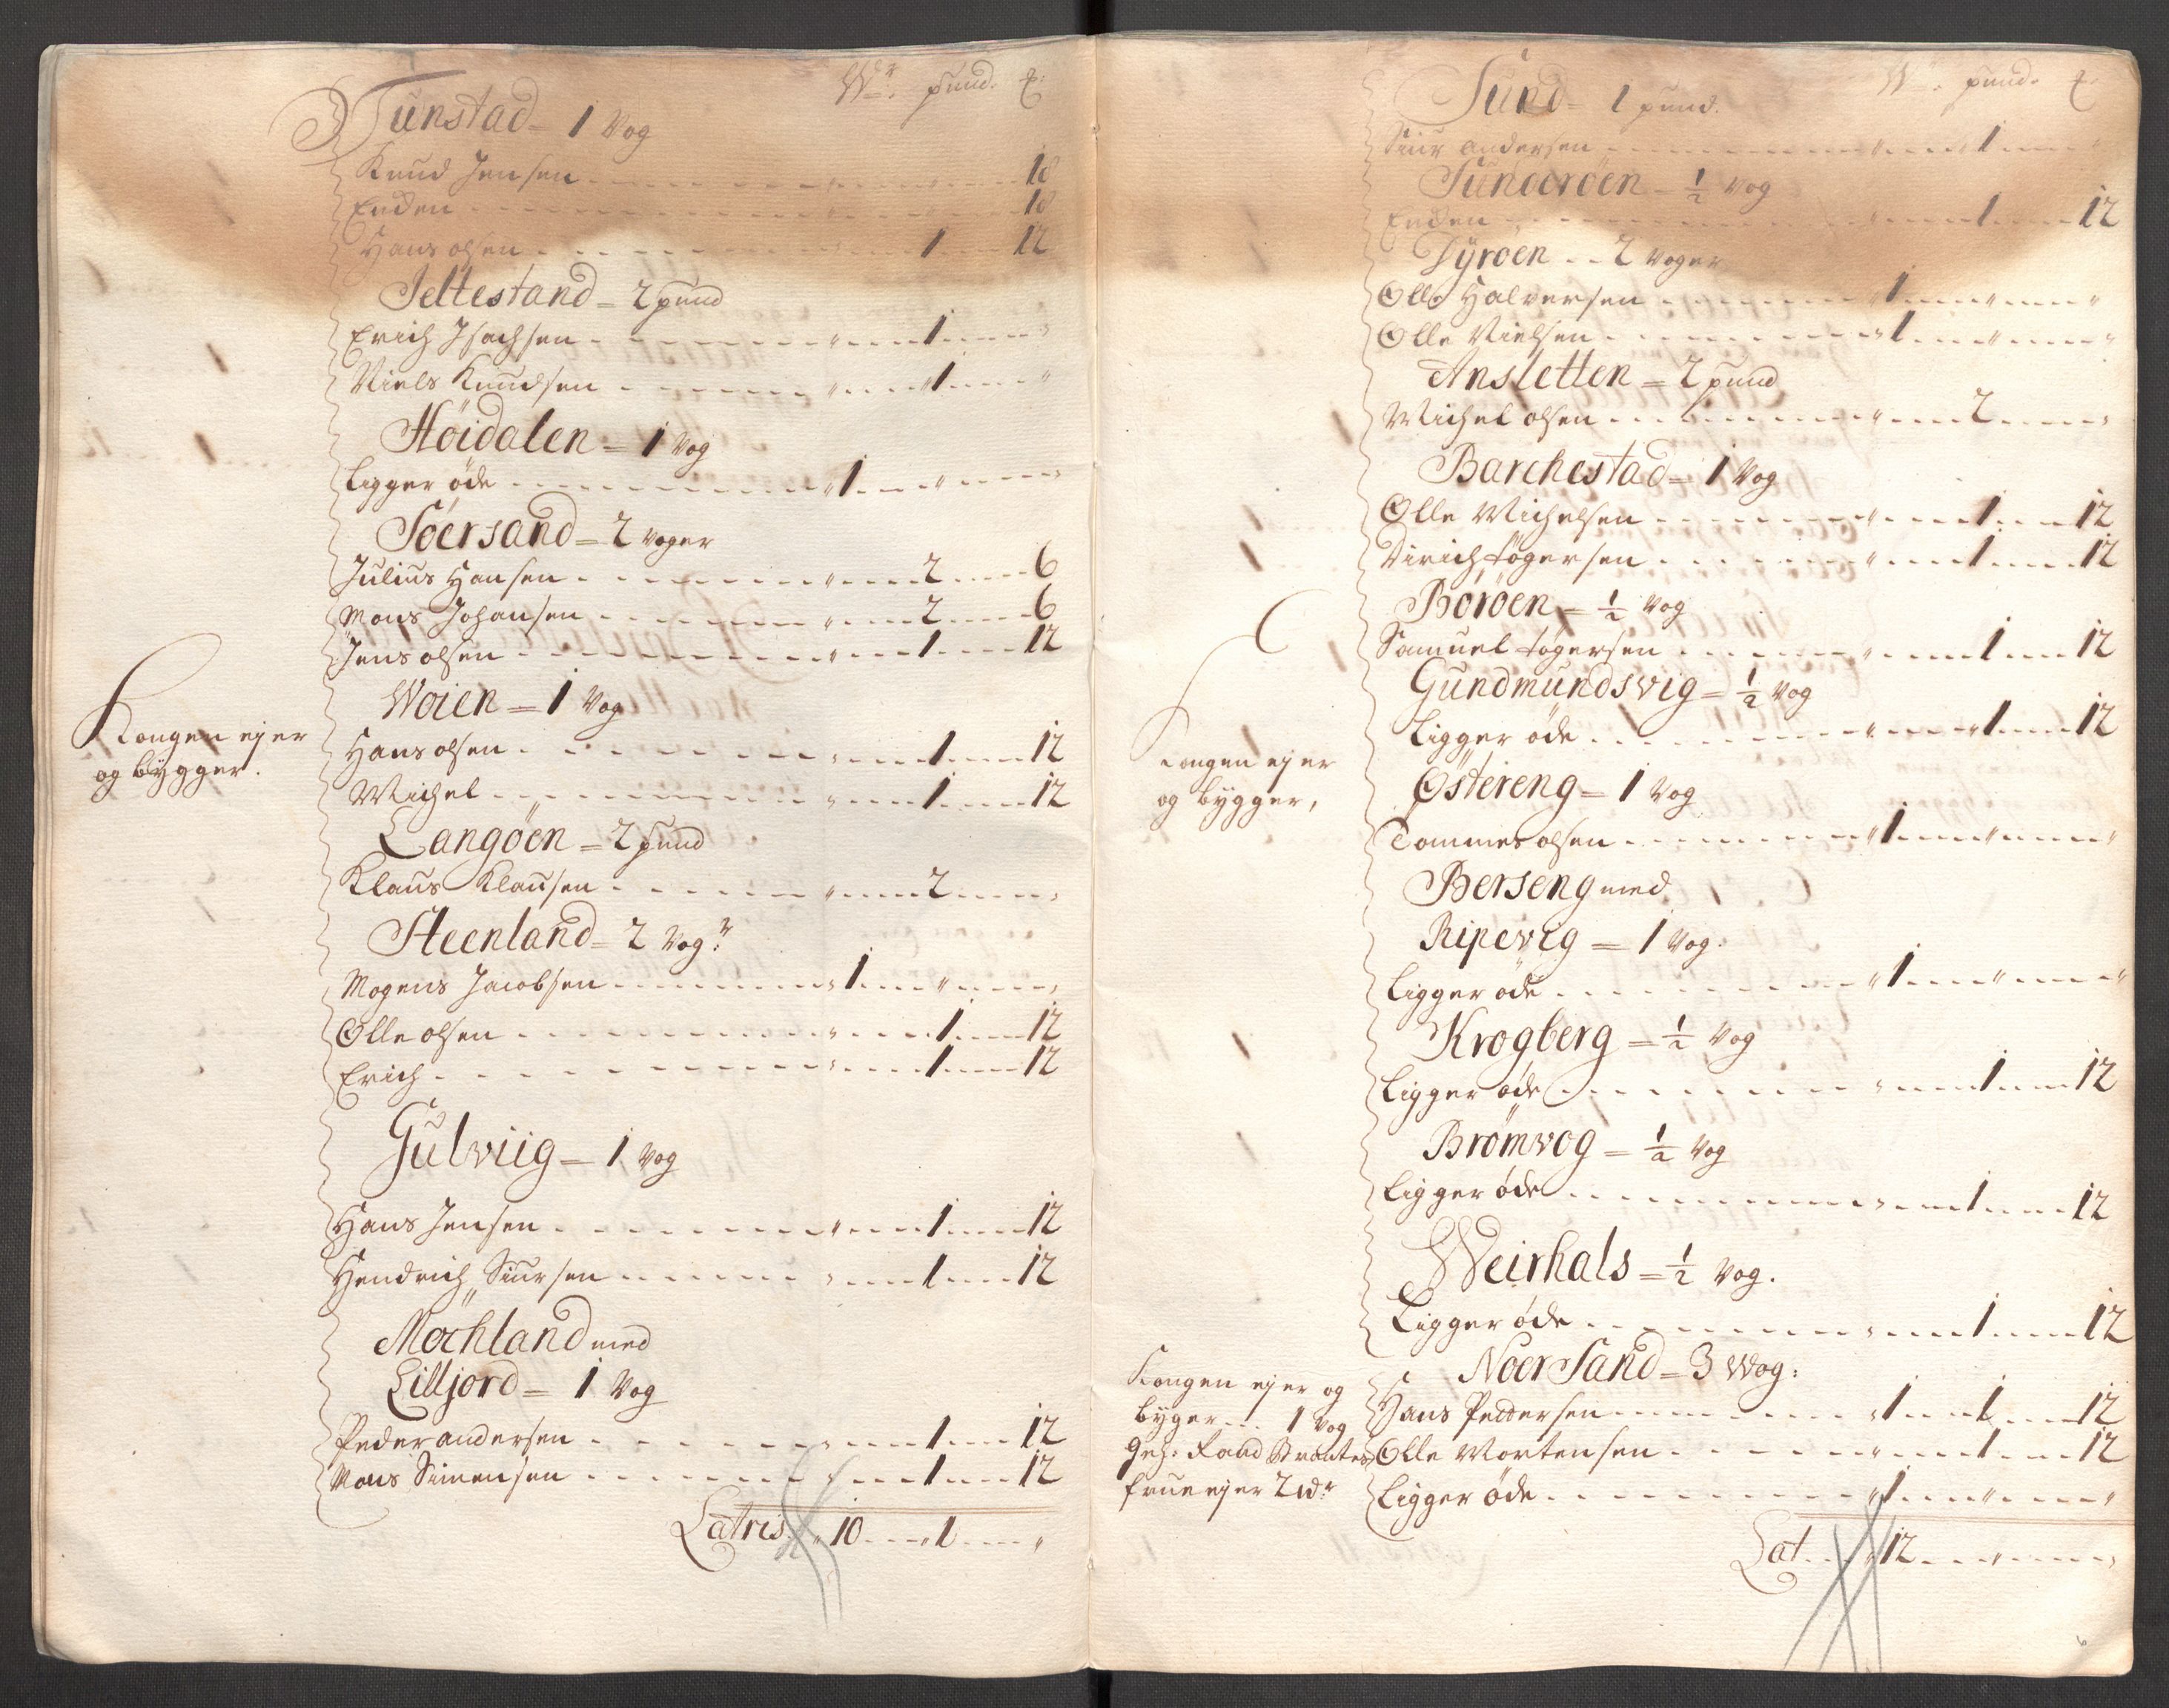 Wr. pund. ℔:
Tunstad = 1 Vog
Knud Jensen 18
Enchen 18
Hans olsen 1 12
Jeltestand = 2 pund
Erich Isachsen " 1 "
Niels Knudsen " 1 "
Höidalen = 1 Vog
Ligger øde " 1 " "
Söersand = 2 Voger
Julius Hansen " 2 6
Mons Johansen " 2 6
Jens olsen " 1 12
Woien = 1 Vog
Kongen ejer
og bÿgger.
Hans olsen " 1 12
Michel " 1 12
Langöen = 2 pund
Klaus Klausen " 2 "
Steenland = 2 Vogr
Mogens Jacobsen " 1 " "
Olle olsen " 1 12
Erich " 1 12
Gulviig = 1 Vog
Hans Jensen " 1 12
Hendrich Siursen " 1 12
Mochland med
Lilljord = 1 Vog
Peder andersen " 1 12
Mons Simensen " 1 12
Latris " 10 " 1 "
Wr. pund. ℔
Sund = 1 pund.
Siur andersen " 1 "
Sunderöen = 1/2 Vog
Enchen 1 12
Dyröen 2 Voger
Olle Halversen " 1 " "
Olle Nielsen " 1 " "
Ansletten = 2 pund
Michel olsen " 2 "
Barchestad = 1 Vog
Olle Michelsen " 1 12
Dirich togersen " 1 12
Böröen = 1/2 Vog
Samuel togersen " 1 12
Gundmundsvig = 1/2 Vog
Kongen ejer
og bygger,
Ligger øde " 1 12
Östereng = 1 Vog
Tommes olsen " 1 " "
Berseng med
Ripevig = 1 Vog.
Ligger øde " 1 " "
Krogberg = 1/2 Vog
Ligger øde " 1 12
Brömvog = 1/2 Vog
Ligger øde " 1 12
Weirhals = 1/2 Vog.
Ligger øde " 1 12
Noer Sand = 3 Wog:
Kongen ejer og
byger 1 Vog
Hans Peddersen " 1 1 12
frue ejer 2 Wr
Olle Mortensen " 1 12
Ligger øde " 1 " "
Lat " 12 " "